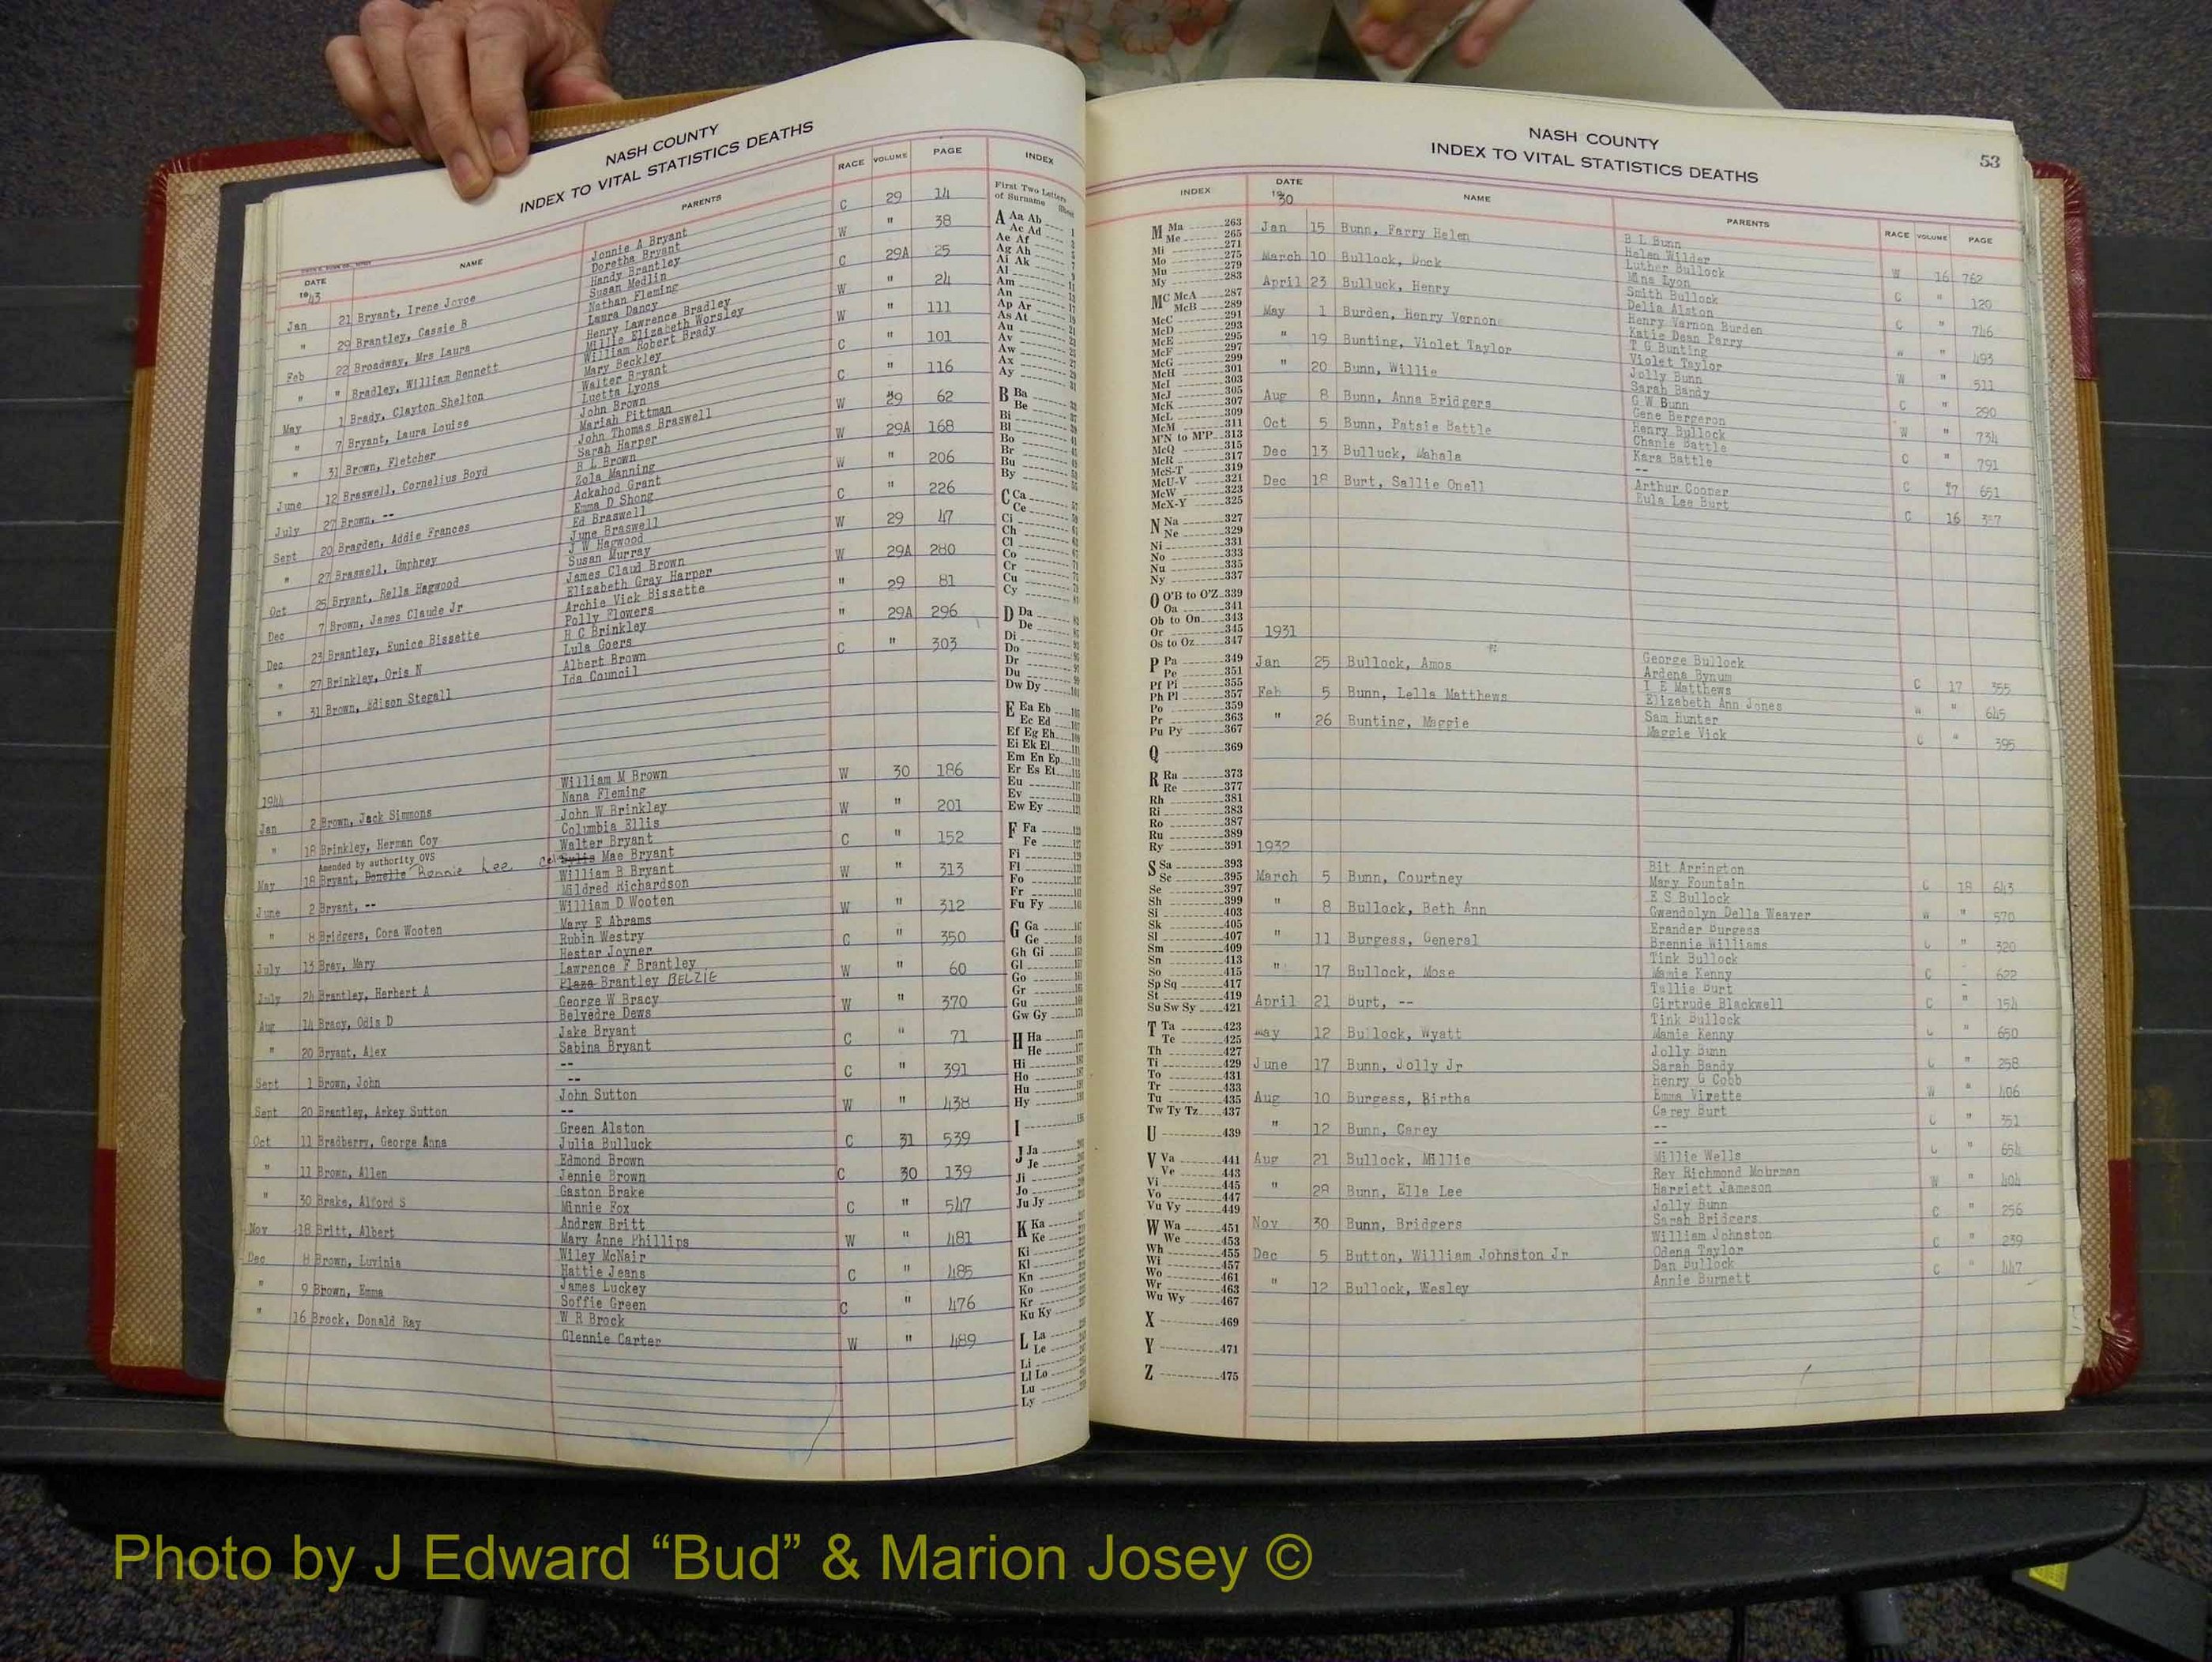 NASH COUNTY
INDEX TO VITAL STATISTICS DEATHS
DATE NAME PARENTS RACE VOLUME PAGE INDEX
1943
Jan 21 Bryant, Irene Joyce Jonnie A Bryant C 29 14
Doretha Bryant
" 29 Brantley, Cassie B Handy Brantley W " 38
Susan Medlin
Feb 22 Broadway, Mrs Laura Nathan Fleming C 29A 25
Laura Dancy
" " Bradley, William Bennett Henry Lawrence Bradley W " 24
Millie Elizabeth Worsley
May 1 Brady, Clayton Shelton William Robert Brady W " 111
Mary Beckley
" 7 Bryant, Laura Louise Walter Bryant C " 101
Luetta Lyons
" 31 Brown, Fletcher John Brown C " 116
Mariah Pittman
June 12 Braswell, Cornelius Boyd John Thomas Braswell W 29 62
Sarah Harper
July 27 Brown, -- R L Brown W 29A 168
Zola Manning
Sept 20 Bragden, Addie Frances Ackahod Grant W " 206
Emma D Shong
" 27 Braswell, Umphrey Ed Braswell C " 226
June Braswell
Oct 25 Bryant, Rella Hagwood J W Hagwood W 29 47
Susan Murray
Dec 7 Brown, James Claude Jr James Claud Brown W 29A 280
Elizabeth Gray Harper
Dec 23 Brantley, Eunice Bissette Archie Vick Bissette " 29 81
Polly Flowers
" 27 Brinkley, Oris N H C Brinkley " 29A 296
Lula Goers
" 31 Brown, Edison Stegall Albert Brown C " 303
Ida Council
1944
Jan 2 Brown, Jack Simmons William M Brown W 30 186
Nana Fleming
" 18 Brinkley, Herman Coy John W Brinkley W " 201
Columbia Ellis
Amended by authority OVS
May 18 Bryant, Donelle Ronnie Lee Walter Bryant C " 152
Mae Bryant
June 2 Bryant, -- William B Bryant W " 313
Mildred Richardson
" 8 Bridgers, Cora Wooten William D Wooten W " 312
Mary E Abrams
July 13 Bray, Mary Rubin Westry C " 350
Hester Joyner
July 24 Brantley, Herbert A Lawrence F Brantley W " 60
Plaza Brantley BELZIE
Aug 14 Bracy, Odis D George W Bracy W " 370
Belvedre Dews
" 20 Bryant, Alex Jake Bryant C " 71
Sabina Bryant
Sept 1 Brown, John -- C " 391
--
Sept 20 Brantley, Arkey Sutton John Sutton W " 438
--
Oct 11 Bradberry, George Anna Green Alston C 31 539
Julia Bulluck
" 11 Brown, Allen Edmond Brown C 30 139
Jennie Brown
" 30 Brake, Alford S Gaston Brake C " 547
Minnie Fox
Nov 18 Britt, Albert Andrew Britt W " 481
Mary Anne Phillips
Dec 8 Brown, Luvinia Wiley McNair C " 485
Hattie Jeans
" 9 Brown, Emma James Luckey C " 476
Soffie Green
" 16 Brock, Donald Ray W R Brock W " 489
Glennie Carter
First Two Letters
of Surname
A Aa Ab
Ac Ad
Ae Af
Ag Ah
Ai Ak
Al
Am
An
Ap Ar
As At
Au
Av
Aw
Ax
Ay
B Ba
Be
Bi
Bl
Bo
Br
Bu
By
C Ca
Ce
Ci
Ch
Cl
Co
Cr
Cu
Cy
D Da
De
Di
Do
Dr
Du
Dw Dy
E Ea Eb
Ec Ed
Ef Eg Eh
Ei Ek El
Em En Ep
Er Es Et
Eu
Ev
Ew Ey
F Fa
Fe
Fi
Fl
Fo
Fr
Fu Fy
G Ga
Ge
Gh Gi
Gl
Go
Gr
Gu
Gw Gy
H Ha
He
Hi
Ho
Hu
Hy
I
J Ja
Je
Ji
Jo
Ju Jy
K Ka
Ke
Ki
Kl
Kn
Ko
Kr
Ku Ky
L La
Le
Li
Ll Lo
Lu
Ly
NASH COUNTY
INDEX TO VITAL STATISTICS DEATHS
53
INDEX DATE NAME PARENTS RACE VOLUME PAGE
M Ma 263
Me 265
Mi 271
Mo 275
Mu 279
My 283
MC McA 287
McB 289
McC 291
McD 293
McE 295
McF 297
McG 299
McH 301
McI 303
McJ 305
McK 307
McL 309
McM 311
M'N to M'P 313
McQ 315
McR 317
McS-T 319
McU-V 321
McW 323
McX-Y 325
N Na 327
Ne 329
Ni 331
No 333
Nu 335
Ny 337
O O'B to O'Z 339
Oa 341
Ob to On 343
Or 345
Os to Oz 347
P Pa 349
Pe 351
Pf Pi 355
Ph Pl 357
Po 359
Pr 363
Pu Py 367
Q 369
R Ra 373
Re 377
Rh 381
Ri 383
Ro 387
Ru 389
Ry 391
S Sa 393
Sc 395
Se 397
Sh 399
Si 403
Sk 405
Sl 407
Sm 409
Sn 413
So 415
Sp Sq 417
St 419
Su Sw Sy 421
T Ta 423
Te 425
Th 427
Ti 429
To 431
Tr 433
Tu 435
Tw Ty Tz 437
U 439
V Va 441
Ve 443
Vi 445
Vo 447
Vu Vy 449
W Wa 451
We 453
Wh 455
Wi 457
Wo 461
Wr 463
Wu Wy 467
X 469
Y 471
Z 475
1930
Jan 15 Bunn, Farry Helen B L Bunn W 16 762
Helen Wilder
March 10 Bullock, Dock Luther Bullock C " 120
Mina Lyon
April 23 Bulluck, Henry Smith Bullock C " 746
Delia Alston
May 1 Burden, Henry Vernon Henry Varnon Burden W " 493
Katie Dean Perry
" 19 Bunting, Violet Taylor T G Bunting W " 511
Violet Taylor
" 20 Bunn, Willie Jolly Bunn C " 290
Sarah Bandy
Aug 8 Bunn, Anna Bridgers G W Bunn W " 734
Gene Bergeron
Oct 5 Bunn, Patsie Battle Henry Bullock C " 791
Charlie Battle
Dec 13 Bulluck, Mahala Kara Battle C 17 651
--
Dec 18 Burt, Sallie Onell Arthur Cooper C 16 357
Eula Lee Burt
1931
Jan 25 Bullock, Amos George Bullock C 17 355
Ardena Bynum
Feb 5 Bunn, Lella Matthews I E Matthews W " 645
Elizabeth Ann Jones
" 26 Bunting, Maggie Sam Hunter C " 395
Maggie Vick
1932
March 5 Bunn, Courtney Bit Arrington C 18 643
Mary Fountain
" 8 Bullock, Beth Ann E S Bullock W " 570
Gwendolyn Della Weaver
" 11 Burgess, General Erander Burgess C " 320
Brennie Williams
" 17 Bullock, Mose Tink Bullock C " 622
Mamie Kenny
April 21 Burt, -- Tullie Burt C " 154
Girtrude Blackwell
May 12 Bullock, Wyatt Tink Bullock C " 650
Mamie Kenny
June 17 Bunn, Jolly Jr Jolly Bunn C " 258
Sarah Bandy
Aug 10 Burgess, Birtha Henry G Cobb W " 406
Emma Virette
" 12 Bunn, Carey Carey Burt C " 351
--
Aug 21 Bullock, Millie -- C " 654
Millie Wells
" 28 Bunn, Ella Lee Rev Richmond Mohrman W " 404
Harriett Jameson
Nov 30 Bunn, Bridgers Jolly Bunn C " 256
Sarah Bridgers
Dec 5 Button, William Johnston Jr William Johnston C " 239
Odena Taylor
" 12 Bullock, Wesley Dan Bullock C " 447
Annie Burnett
Photo by J Edward “Bud” & Marion Josey ©